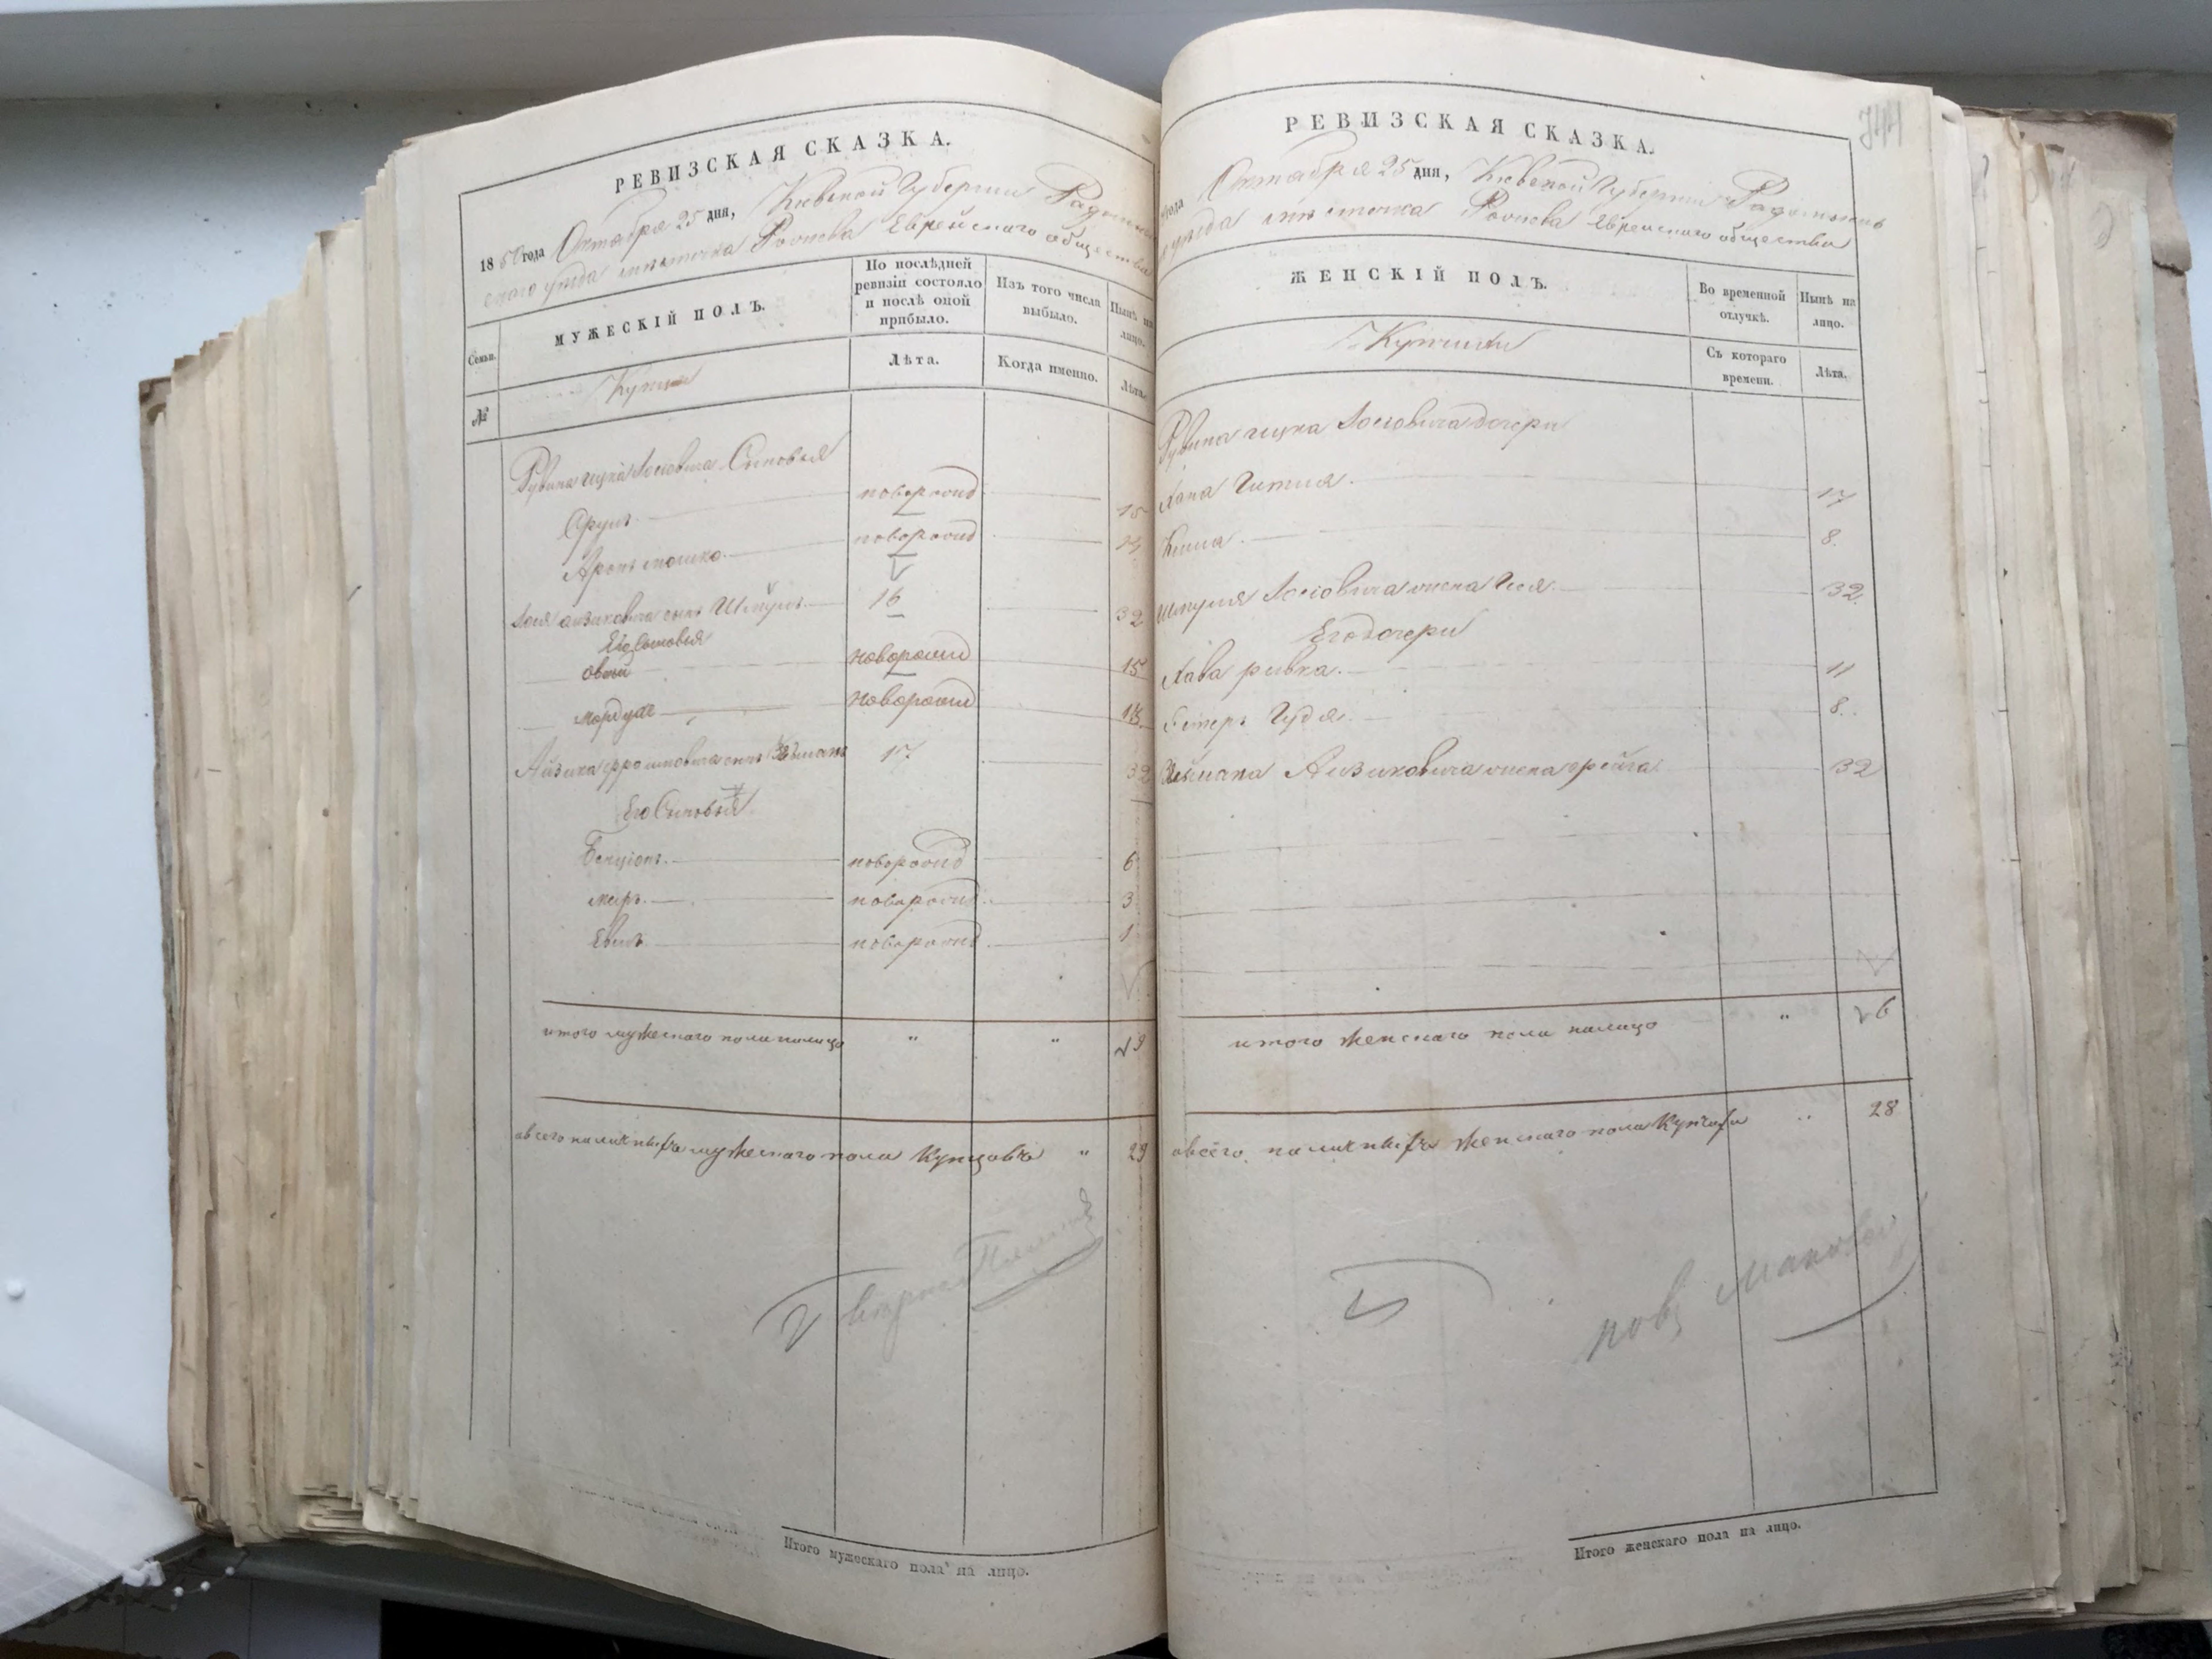 РЕВИЗСКАЯ СКАЗКА.
1850 года Октября 25 дня, Кіевской Губерніи Радомысль
скаго уезда местечка Еврейскаго общества
Семьи.
МУЖЕСКІЙ ПОЛЪ.
По послѣдней ревизіи состояло и послѣ оной прибыло.
Изъ того числа выбыло.
Нынѣ на лицо.
№
Купцы
Лѣта.
Когда именно.
Лѣта.
Рувина ицка Іосіовича Сыновья
Сруль новорожд 15
Аронъ мошко новорожд
Іося аизиковича сынъ Шмуль 16 32
Его Сыновья
овшій новорожд 15
мордухъ новорожд 13
Айзика сынъ 17 32
Его Сыновья
Бенціонъ новорожд 6
меиръ новорожд 3
новорожд 1
итого мужескаго пола налицо " " 9
а всего наличныхъ мужескаго пола Купцовъ " 29
Итого мужескаго пола на лицо.
РЕВИЗСКАЯ СКАЗКА.
744
года Октября 25 дня, Кіевской Губерніи Радомысльс
уезда местечка Еврейскаго общества
ЖЕНСКІЙ ПОЛЪ.
Во временной отлучкѣ.
Нынѣ на лицо.
Съ котораго времени.
Лѣта.
Рувина ицка Іосіовича дочери
Хана Гитля 17
8.
Шмуля Іосіовича жена 32
Его дочери
Хава ривка. 11
Естеръ Гудя. 8.
Аизиковича жена фрейга 32
итого женскаго пола налицо " 6
а всего наличныхъ женскаго пола " 28
пов
Итого женскаго пола на лицо.